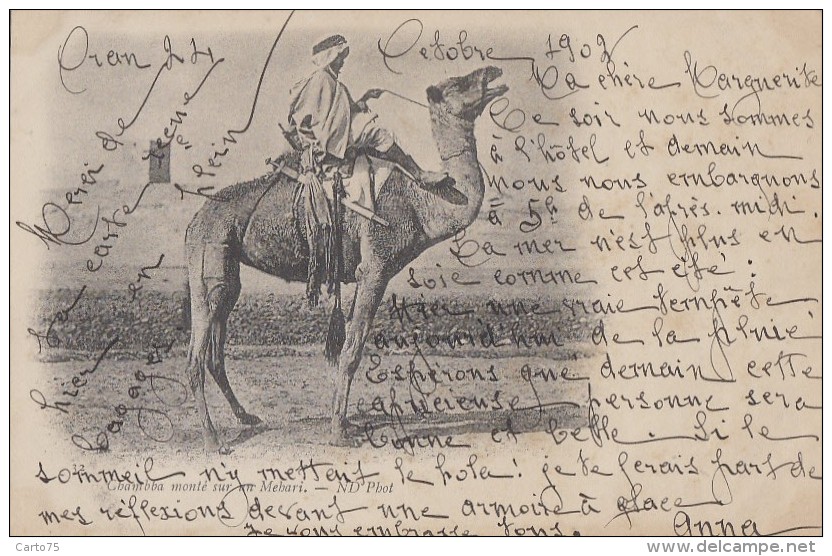 Oran 24 Octobre 1902
Ma chère Marguerite
Ce soir nous sommes
à l'hôtel et demain
nous nous embarquons
à 5h de l'après-midi.
La mer n'est plus en
soie comme cet été!
Hier une vraie tempête
aujourd'hui de la pluie!
Espérons que demain cette
capricieuse personne sera
bonne et belle. Si le
sommeil n'y mettait le hola! je te ferais part de
mes réflexions devant une armoire à glace
Je vous embrasse tous. Anna
Merci de
ta carte reçue
hier en plein
bagages
32 Chambba monté sur un Mehari. — ND Phot
Carto75
http://www.delcampe.net